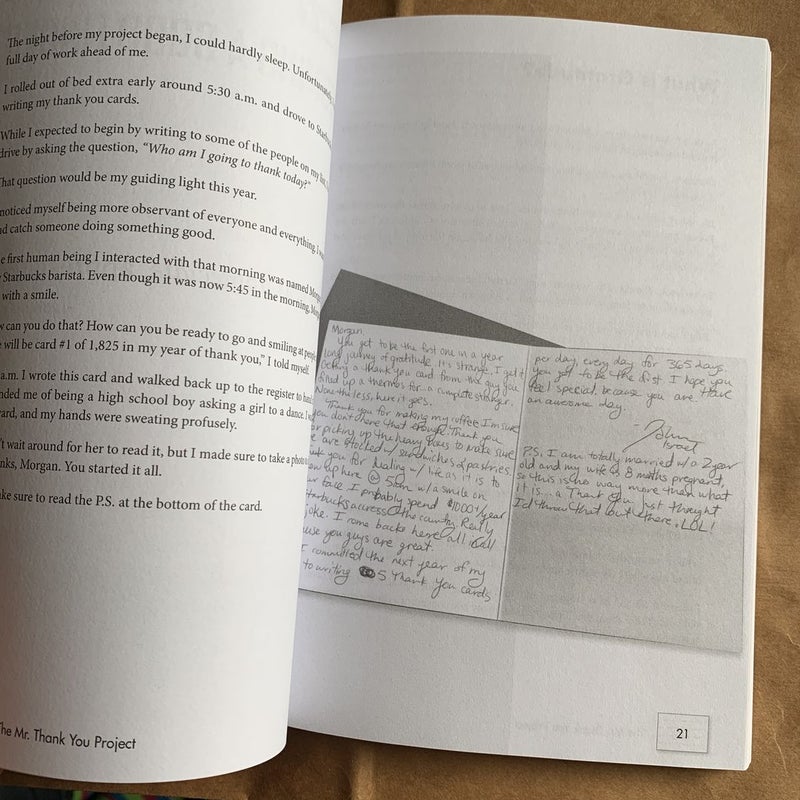 The night before my project began, I could hardly sleep. Unfortunately,
full day of work ahead of me.
I rolled out of bed extra early around 5:30 a.m. and drove to Starbucks
writing my thank you cards.
While I expected to begin by writing to some of the people on my
drive by asking the question, "Who am I going to thank today?"
That question would be my guiding light this year.
noticed myself being more observant of everyone and everything. I
catch someone doing something good.
first human being I interacted with that morning was named Morgan
Starbucks barista. Even though it was now 5:45 in the morning,
with a smile.
can you do that? How can you be ready to go and smiling at
will be card #1 of 1,825 in my year of thank you," I told myself.
a.m. I wrote this card and walked back up to the register to hand
me of being a high school boy asking a girl to a dance. I
and my hands were sweating profusely.
wait around for her to read it, but I made sure to take a photo
Morgan. You started it all.
sure to read the P.S. at the bottom of the card.
The Mr. Thank You Project
Morgan,
You get to be the first one in a year
long journey of gratitude. It's strange, I get it
Getting a thank you card from the guy you
filled up a thermos for. a complete stranger.
None the less, here it goes.
Thank you for making my coffee. I'm sure
you don't hear that enough. Thank you
for picking up the heavy boxes to make sure
are stocked w/ sandwiches & pastries.
you for dealing w/ life as it is to
up here @ 5am w/ a smile on
face. I probably spend $1000/year
Starbucks across the country. Really
joke. I come back here all
you guys are great.
I committed the next year of my
to writing 5 Thank you cards
per day, every day for 365 days.
you get to be the first. I hope you
feel special, because you are. Have
an awesome day.
- John
Israel
P.S. I am totally married w/ a 2 year
old and my wife is 8 mths pregnant,
so this is no way more than what
it is... a Thank You just thought
I'd throw that out there. LOL!
21